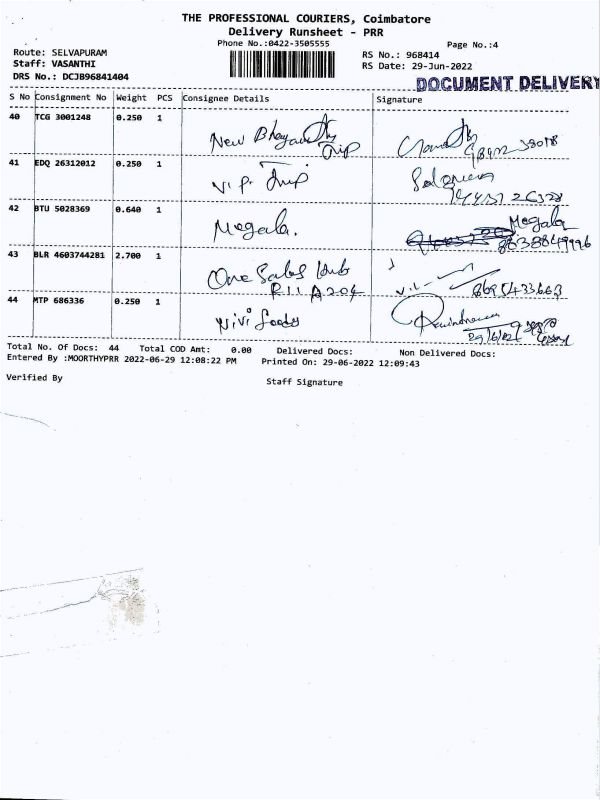 THE PROFESSIONAL COURIERS, Coimbatore
Delivery Runsheet - PRR
Phone No.:0422-3505555
Page No.:4
Route: SELVAPURAM
Staff: VASANTHI
DRS No.: DCJB96841404
RS No.: 968414
RS Date: 29-Jun-2022
DOCUMENT DELIVERY
S No Consignment No Weight PCS Consignee Details Signature
40 TCG 3001248 0.250 1
New
41 EDQ 26312012 0.250 1
V.P.
42 BTU 5028369 0.640 1
Megala. Megala
43 BLR 4603744281 2.700 1
One Sales Hub
44 MTP 686336 0.250 1
Nivi
Total No. Of Docs: 44 Total COD Amt: 0.00 Delivered Docs: Non Delivered Docs:
Entered By :MOORTHYPRR 2022-06-29 12:08:22 PM Printed On: 29-06-2022 12:09:43
Verified By Staff Signature